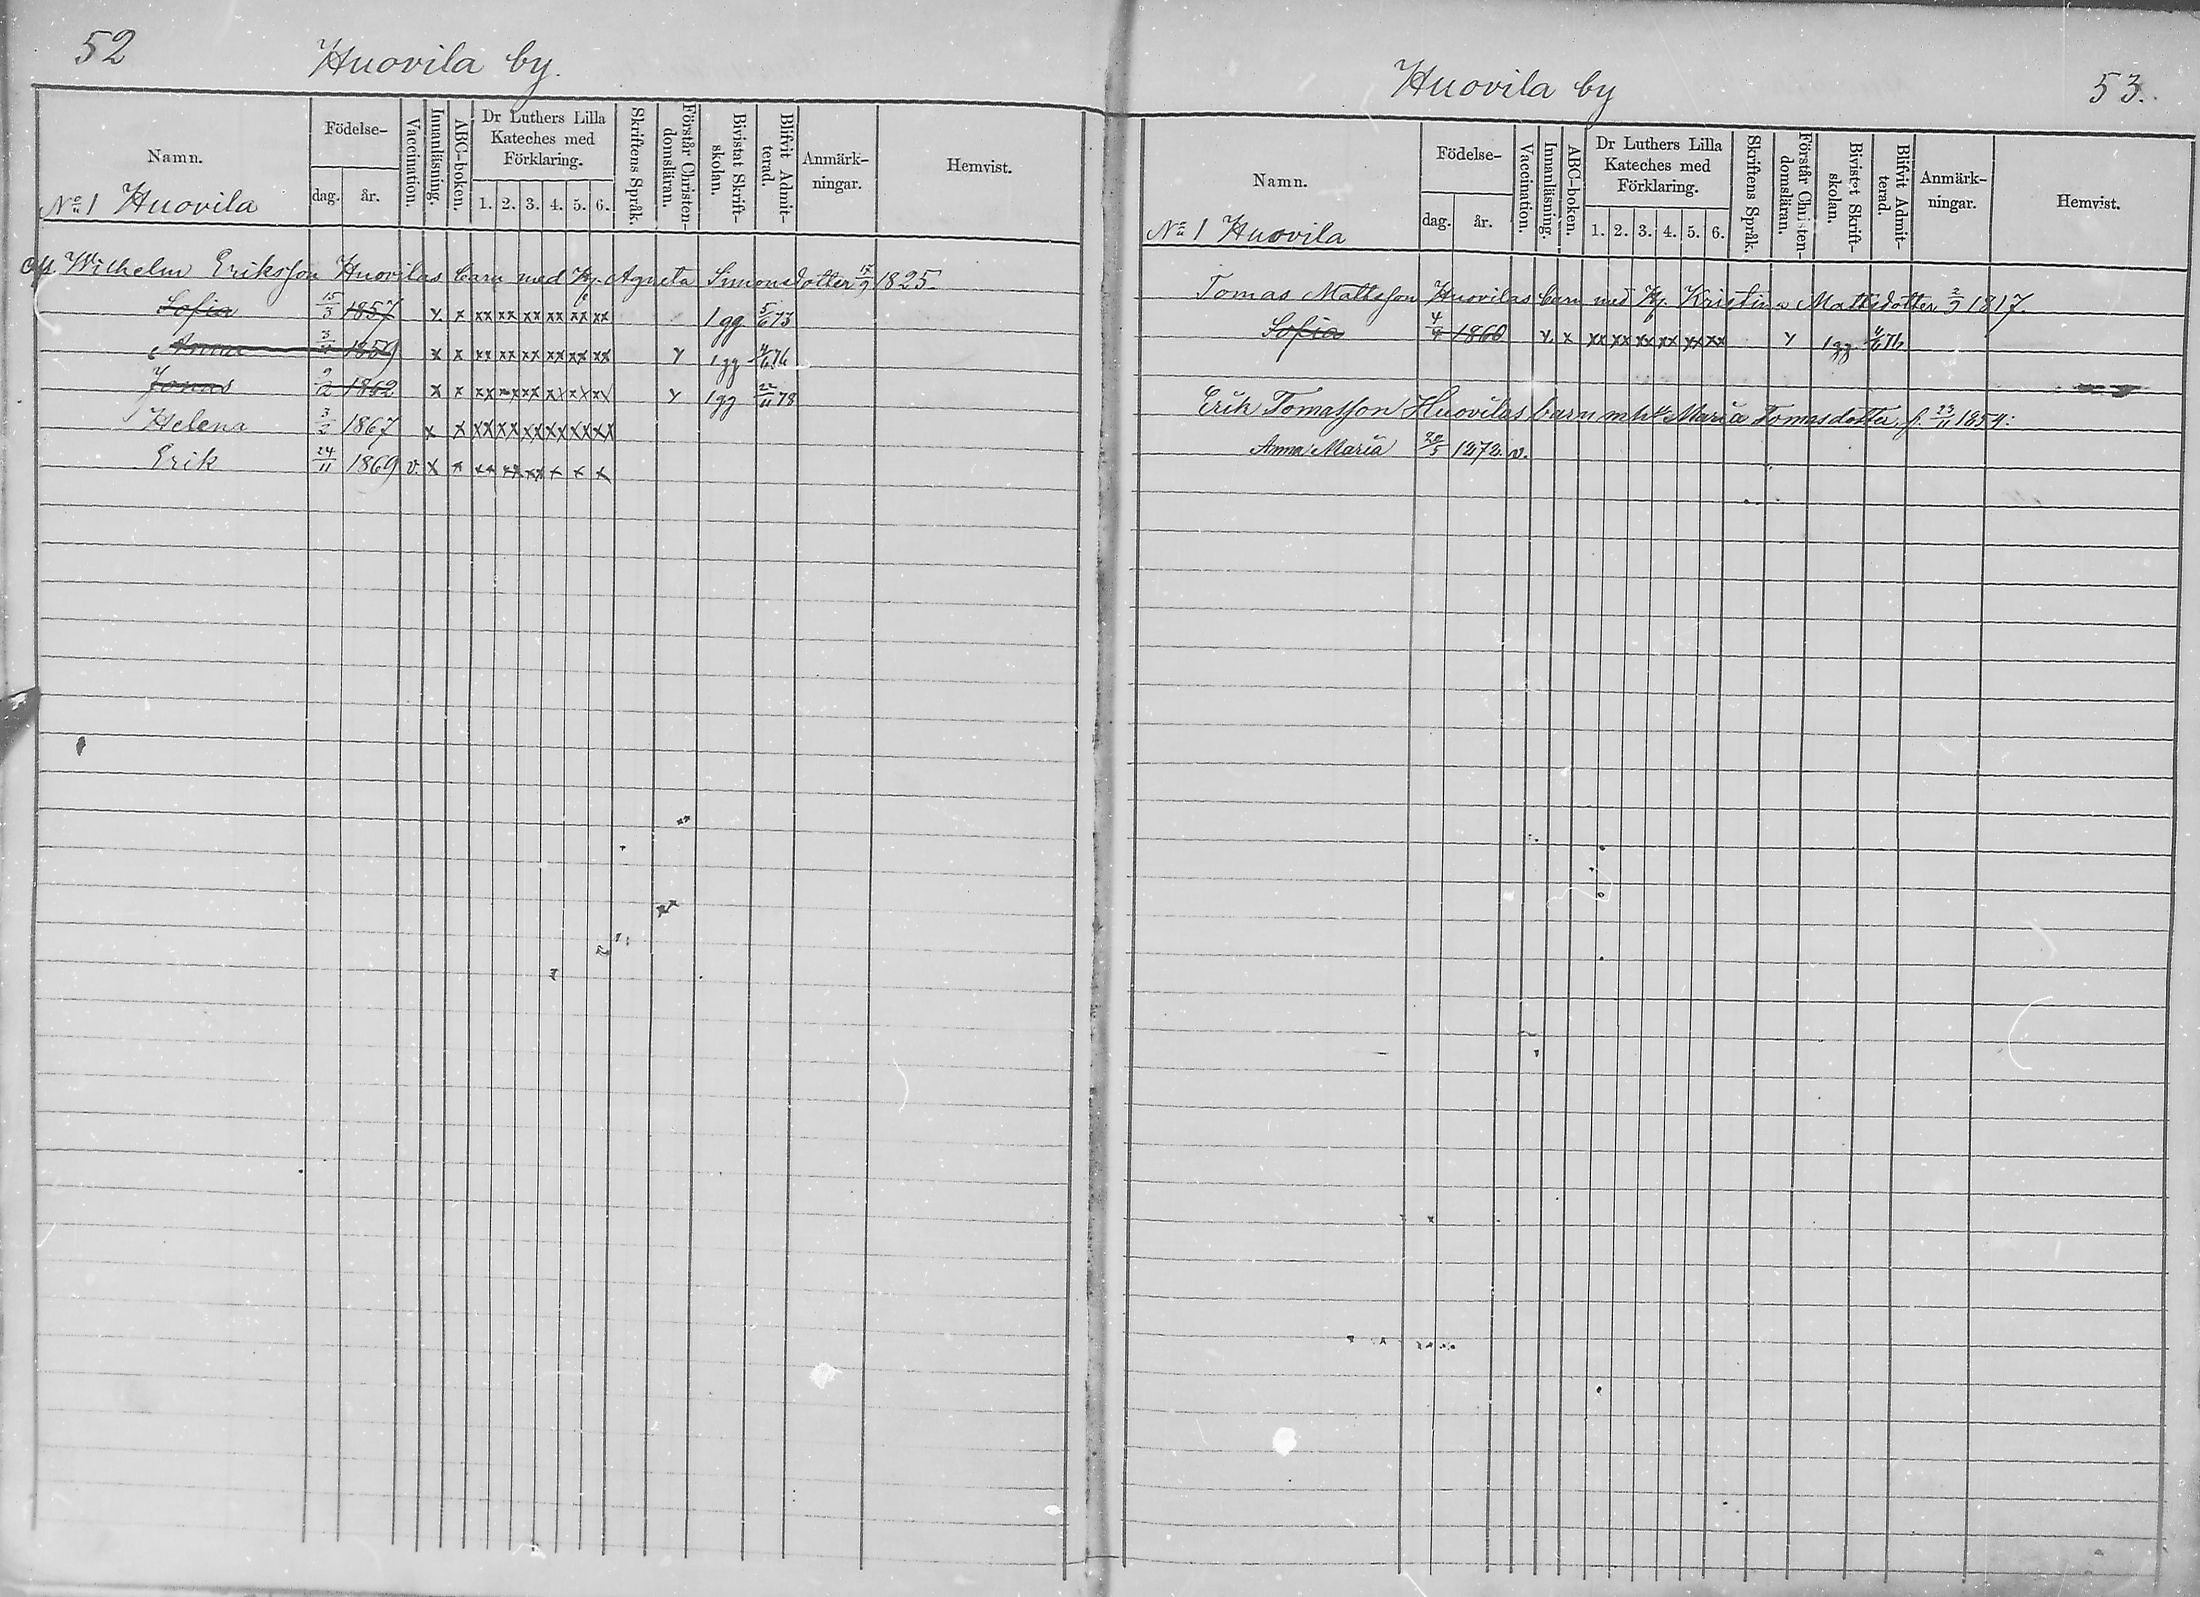 52 Huovila by.
Namn. Födelse- dag. år. Vaccination. Innanläsning. ABC-boken. Dr Luthers Lilla Kateches med Förklaring. 1. 2. 3. 4. 5. 6. Skriftens Språk. Förstår Christen-domsläran. Bivistat Skrift-skolan. Blifvit Admit-terad. Anmärk-ningar. Hemvist.
No 1 Huovila
Wilhelm Eriksson Huovilas barn med Hu. Agneta Simonsdotter 17/9 1825.
Sofia 15/3 1857 x x xx xx xx xx xx xx 1 gg 5/6 73
Anna 1859 x x xx xx xx xx xx xx Y 1 gg 4/6 76
Jonas 9/2 1862 x x xx xx xx xx xx xx Y 1 gg 22/11 78
Helena 3/2 1867 x x xx xx xx xx xx xx
Erik 24/11 1869 v. x x xx xx xx x x x
Huovila by 53.
Namn. Födelse- dag. år. Vaccination. Innanläsning. ABC-boken. Dr Luthers Lilla Kateches med Förklaring. 1. 2. 3. 4. 5. 6. Skriftens Språk. Förstår Christen-domsläran. Bivistat Skrift-skolan. Blifvit Admit-terad. Anmärk-ningar. Hemvist.
No 1 Huovila
Tomas Mattsson Huovilas barn med Hu. Kristina Mattsdotter 2/9 1817.
Sofia 1860 x x xx xx xx xx xx xx Y 1 gg 4/6 76
Erik Tomasson Huovilas barn m. h. Maria Tomasdotter f. 23/11 1854.
Anna Maria 20/5 1872. v.